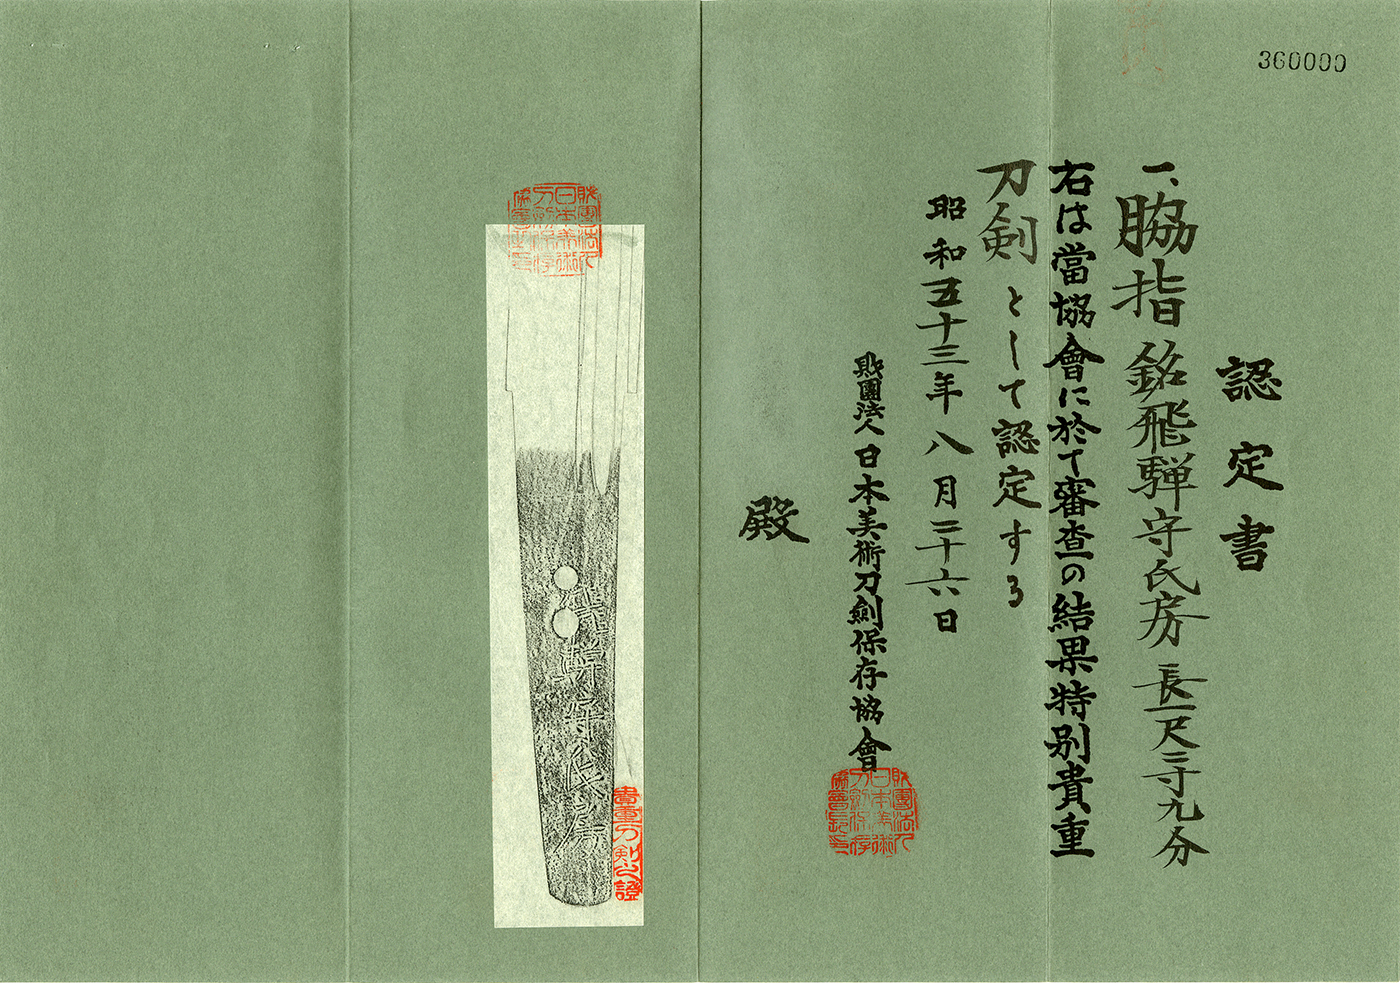 360000
認定書
一、脇指 銘飛騨守氏房 長一尺三寸九分
右は當協會に於て審査の結果特別貴重
刀剣として認定する
昭和五十三年八月二十六日
財團法人日本美術刀劍保存協會
殿
財團法人日本美術刀剣保存協會長之印
飛騨守氏房
貴重刀剣之證